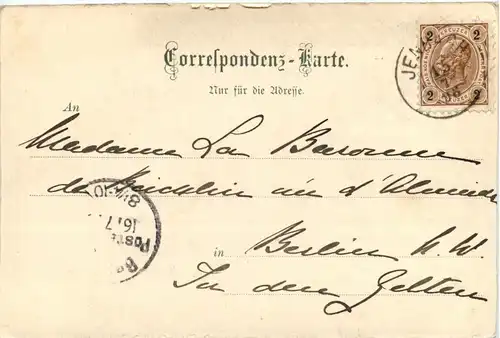 Correspondenz-Karte.
Nur für die Adresse.
2 2
An
Madame La Baronne
de d'Almeida
16/7
in Berlin N. W.
In den Zelten